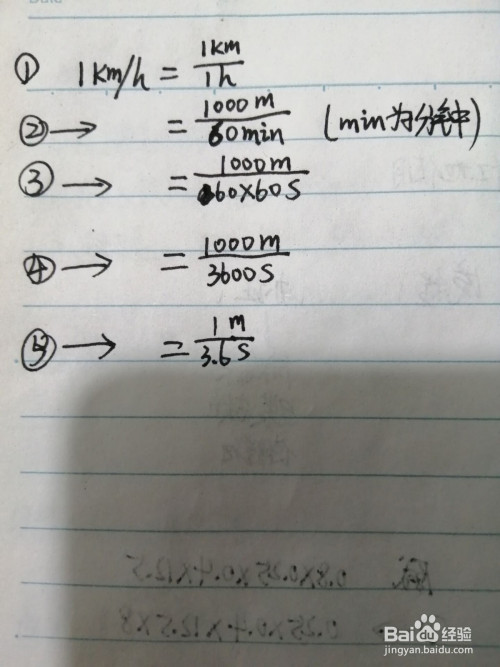 ① 1km/h = 1km/1h
② → = 1000m/60min (min为分钟)
③ → = 1000m/60×60s
④ → = 1000m/3600s
⑤ → = 1m/3.6s
0.8×0.25×0.4×12.5
0.25×0.4×12.5×8
Baidu 经验
jingyan.baidu.com